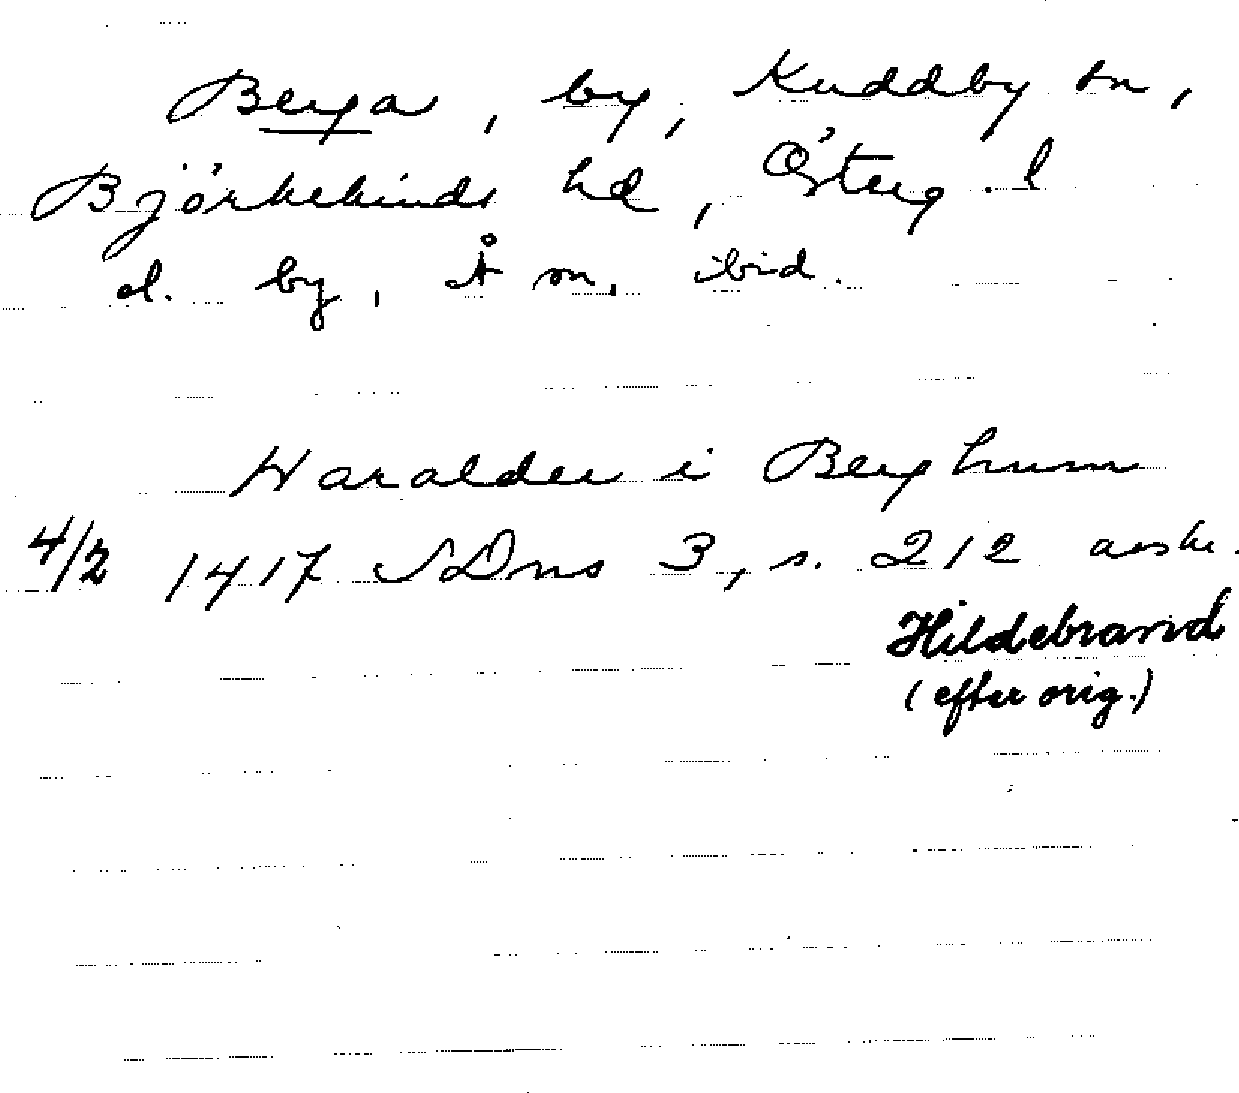 Berga, by, Kuddby sn,
Björkekinds hd, Österg. l
el. by, Å sn, ibid.
Haralder i Berghum
4/2 1417 SDns 3, s. 212 avskr.
Hildebrand
(efter orig.)